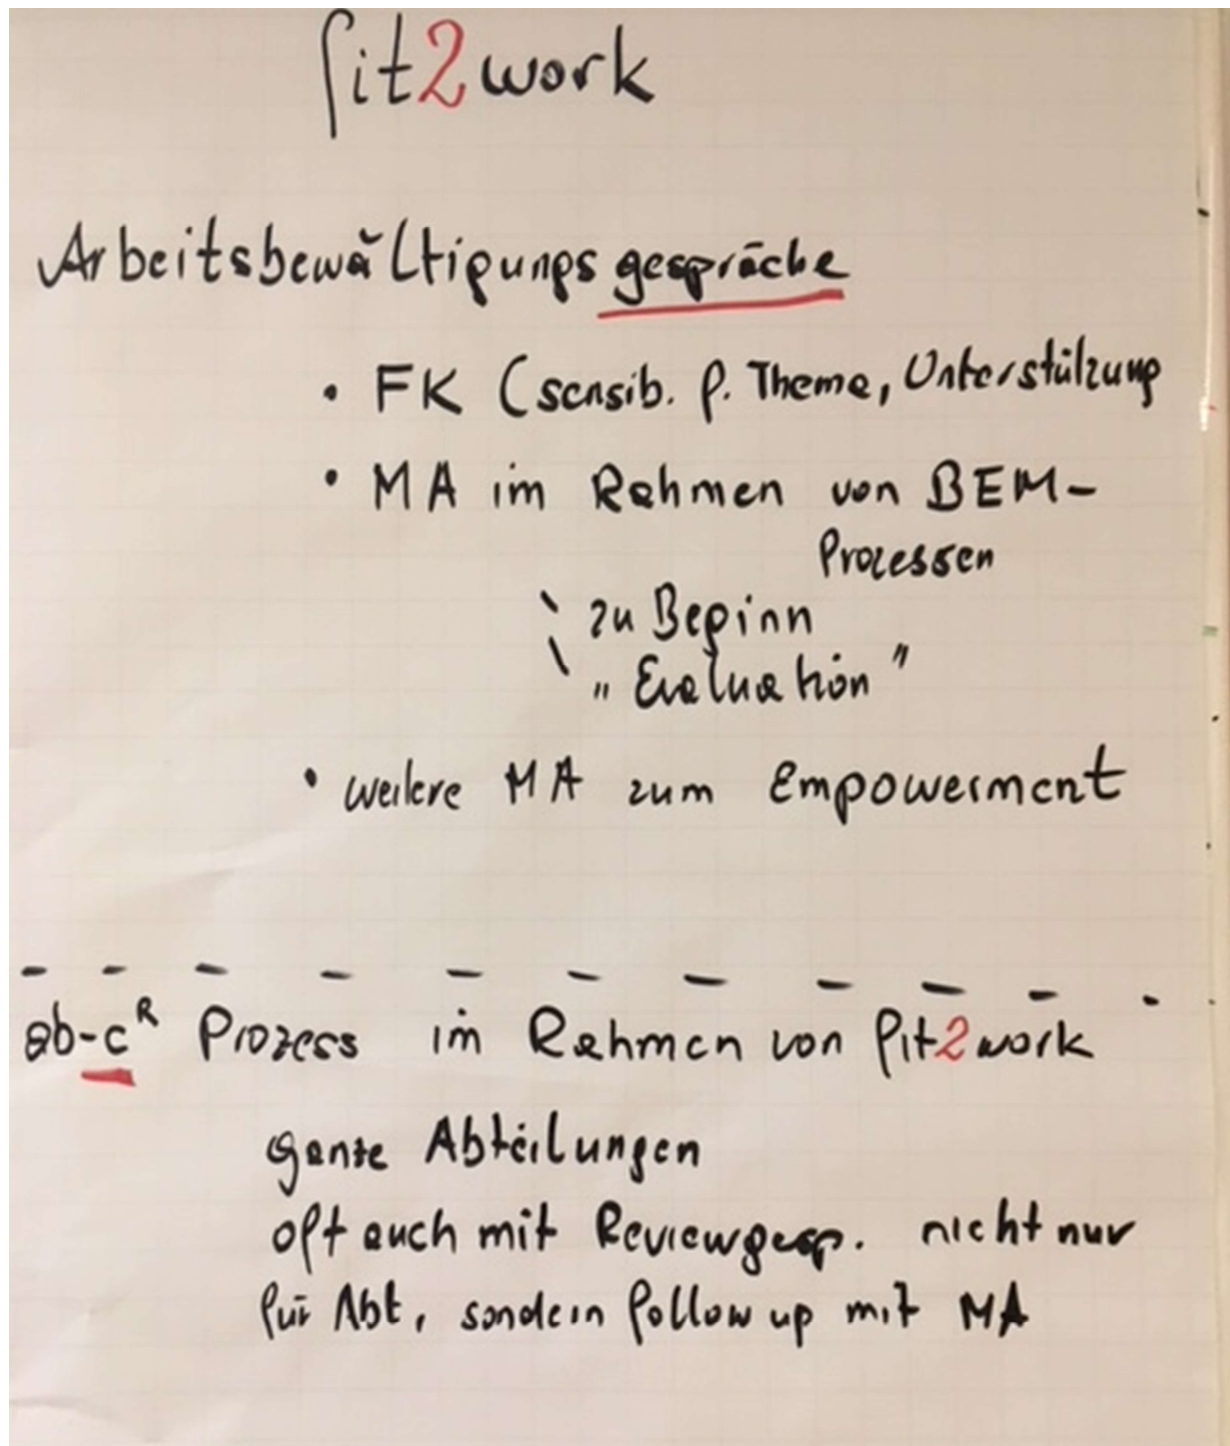 fit2work
Arbeitsbewältigungsgespräche
• FK (sensib. f. Thema, Unterstützung
• MA im Rahmen von BEM-
Prozessen
\ zu Beginn
\ „Evaluation"
• weitere MA zum Empowerment
- - - - - - - - - - -
ab-c® Prozess im Rahmen von fit2work
ganze Abteilungen
oft auch mit Reviewgesp. nicht nur
für Abt, sondern follow up mit MA